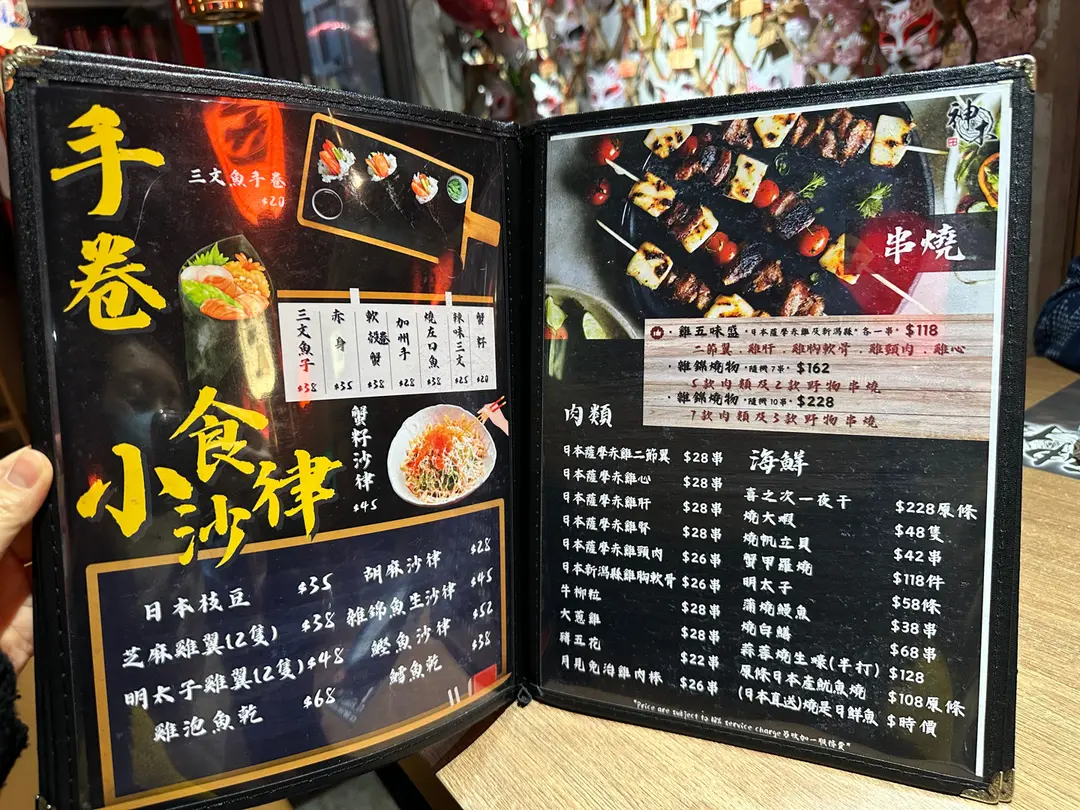 手卷
三文魚手卷
$20
三文魚子 $38
赤身 $35
軟殼蟹 $38
加州手卷 $28
燒左口魚 $38
辣味三文 $25
蟹籽 $20
小食
沙律
蟹籽沙律
$45
日本枝豆 $35
芝麻雞翼(2隻) $38
明太子雞翼(2隻) $48
雞泡魚乾 $68
胡麻沙律 $28
雜錦魚生沙律 $45
鰹魚沙律 $52
鱈魚乾 $38
神
串燒
·雞五味盛 ·日本薩摩赤雞及新潟縣·各一串· $118
二節翼．雞肝．雞胸軟骨．雞頸肉．雞心
·雜錦燒物 ·隨機7串· $162
5款肉類及2款野物串燒
·雜錦燒物 ·隨機10串· $228
7款肉類及3款野物串燒
肉類
日本薩摩赤雞二節翼 $28串
日本薩摩赤雞心 $28串
日本薩摩赤雞肝 $28串
日本薩摩赤雞腎 $28串
日本薩摩赤雞頸肉 $26串
日本新潟縣雞胸軟骨 $26串
牛柳粒 $28串
大蔥雞 $28串
豚五花 $22串
月見免治雞肉棒 $26串
海鮮
喜之次一夜干 $228原條
燒大蝦 $48隻
燒帆立貝 $42串
蟹甲羅燒 $118件
明太子 $58條
蒲燒鰻魚 $38串
燒白鱔 $68串
蒜蓉燒生蠔(半打) $128
原條日本產魷魚燒 $108原條
(日本直送)燒是日鮮魚 $時價
"Price are subject to 10% service charge 另收加一服務費"